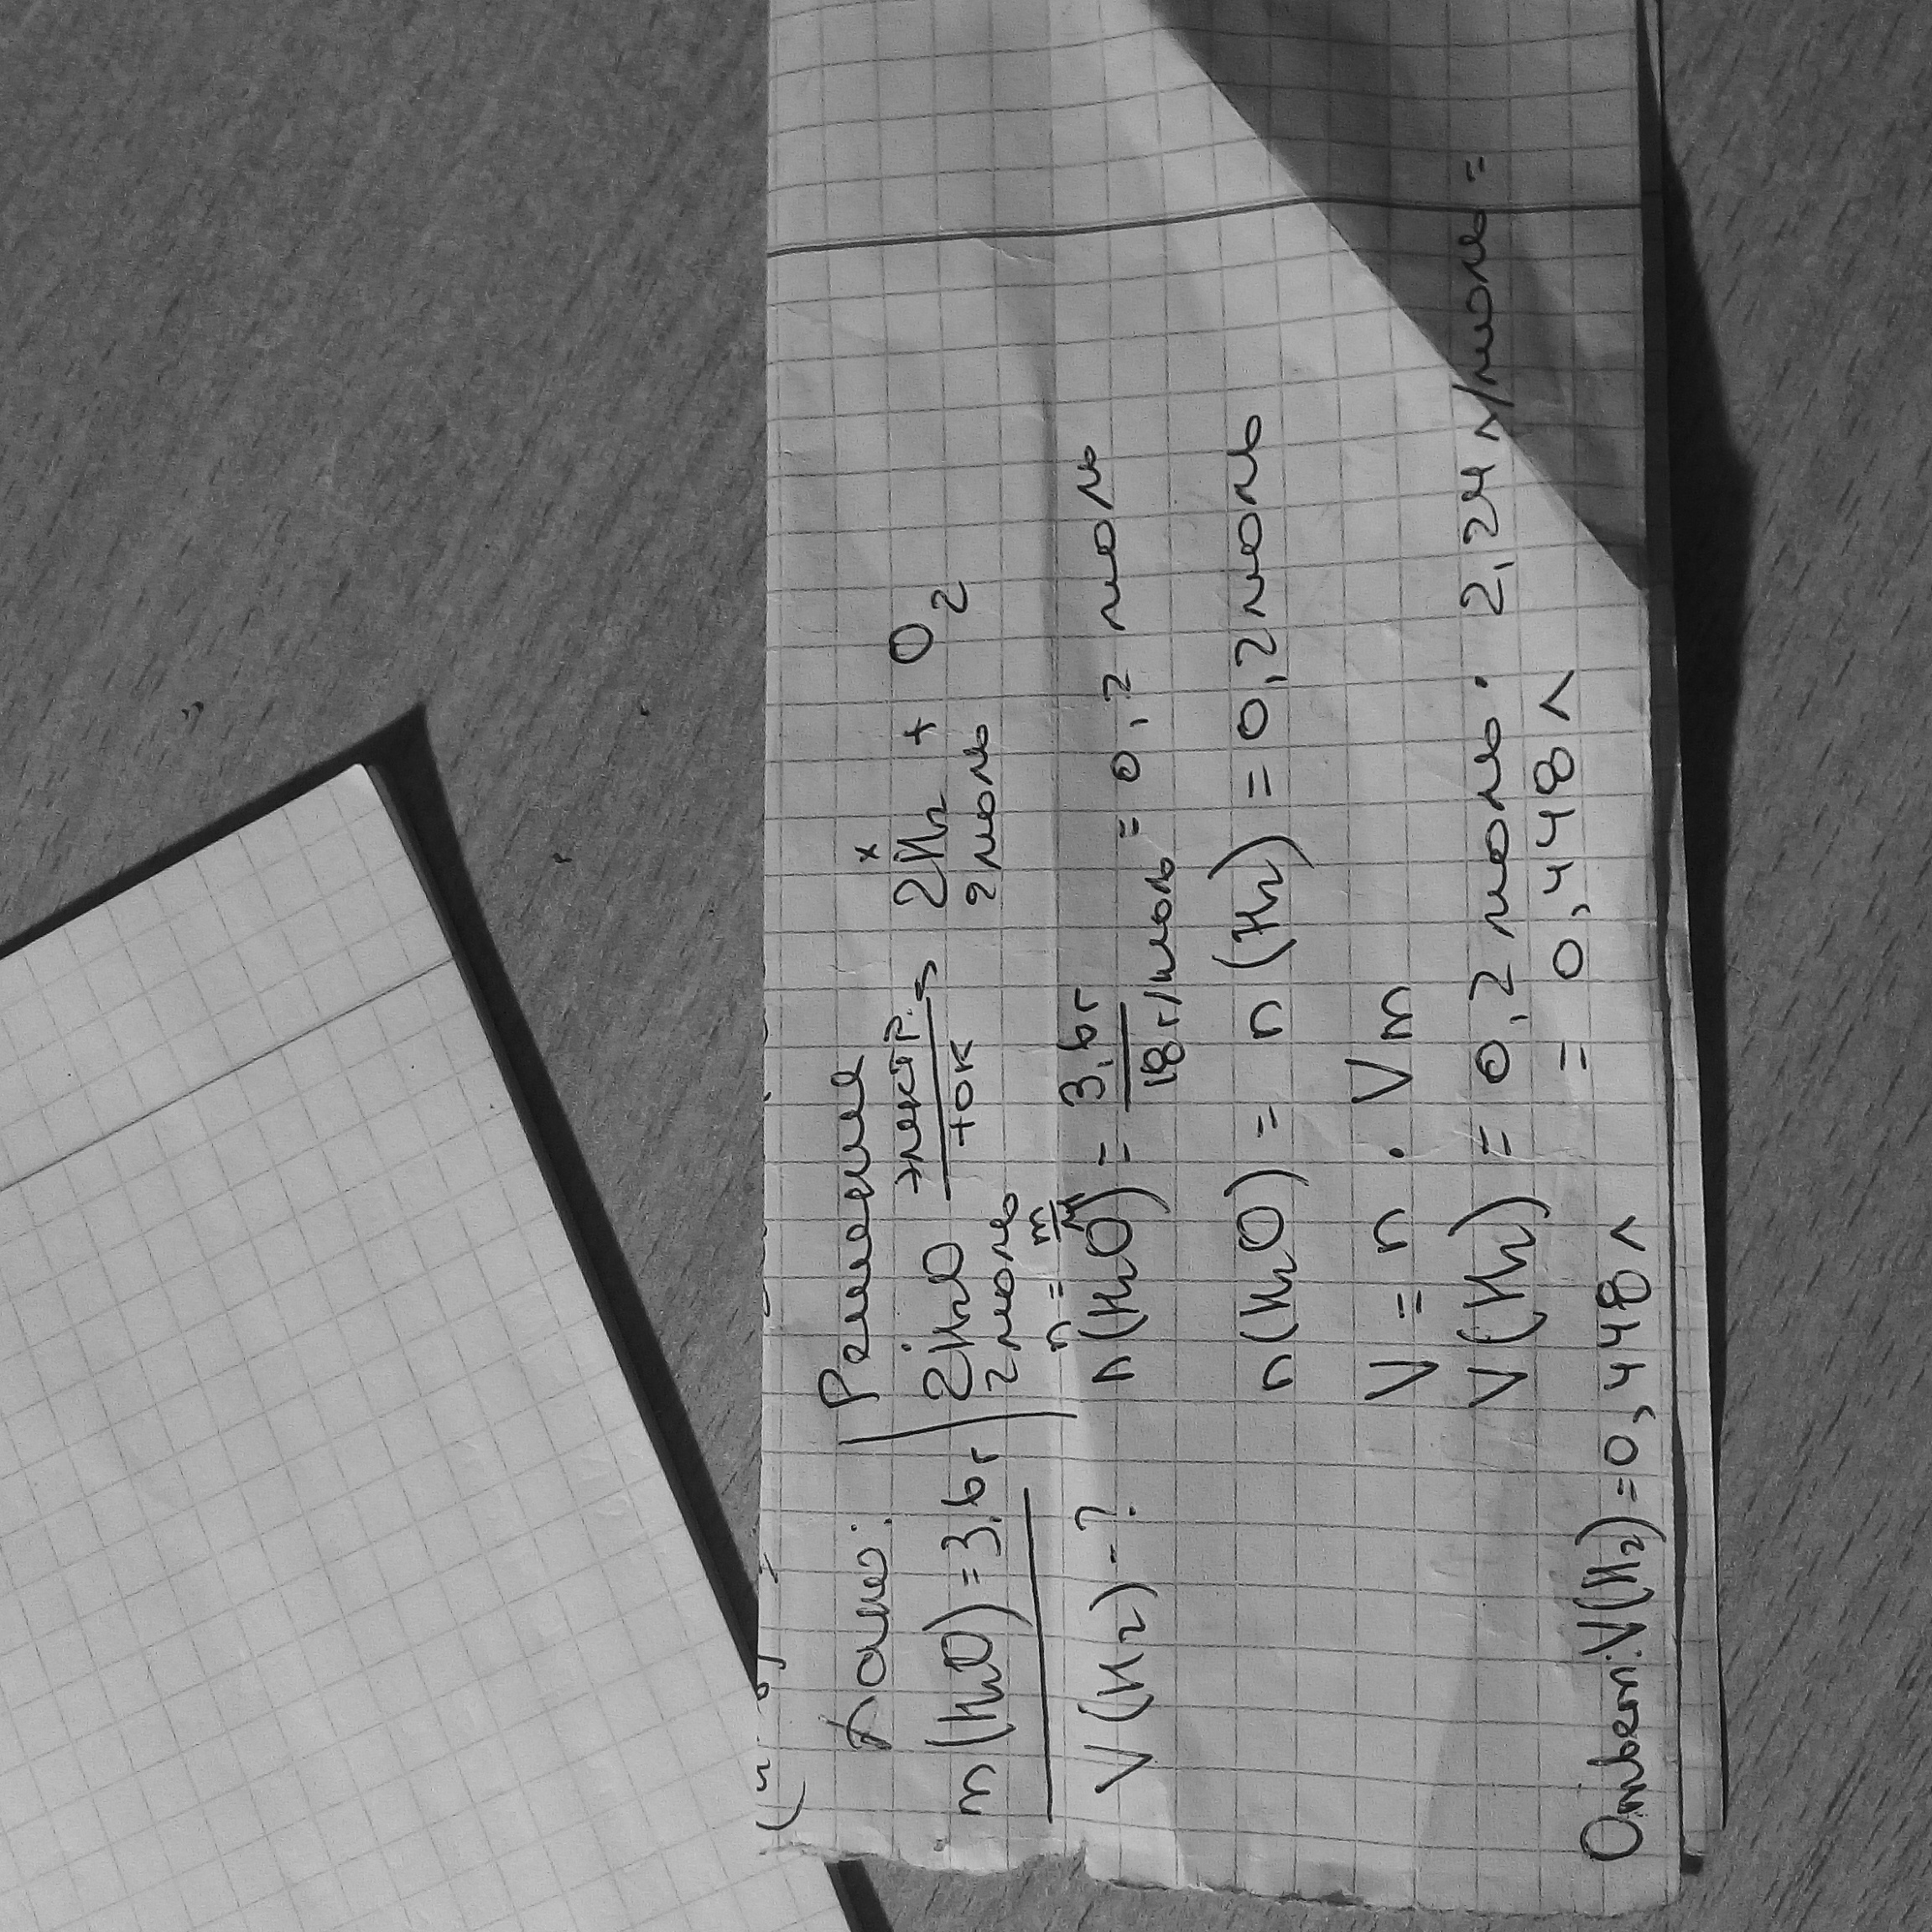 Дано:
Решение
m(H₂O)=3,6г
2H₂O электр. ток → 2H₂ + O₂
x
2моль
2моль
n = m/M
V(H₂)-?
n(H₂O) = 3,6г/18г/моль = 0,2 моль
n(H₂O) = n(H₂) = 0,2моль
V = n · Vm
V(H₂) = 0,2 моль · 2,24 л/моль =
= 0,448 л
Ответ: V(H₂)=0,448 л